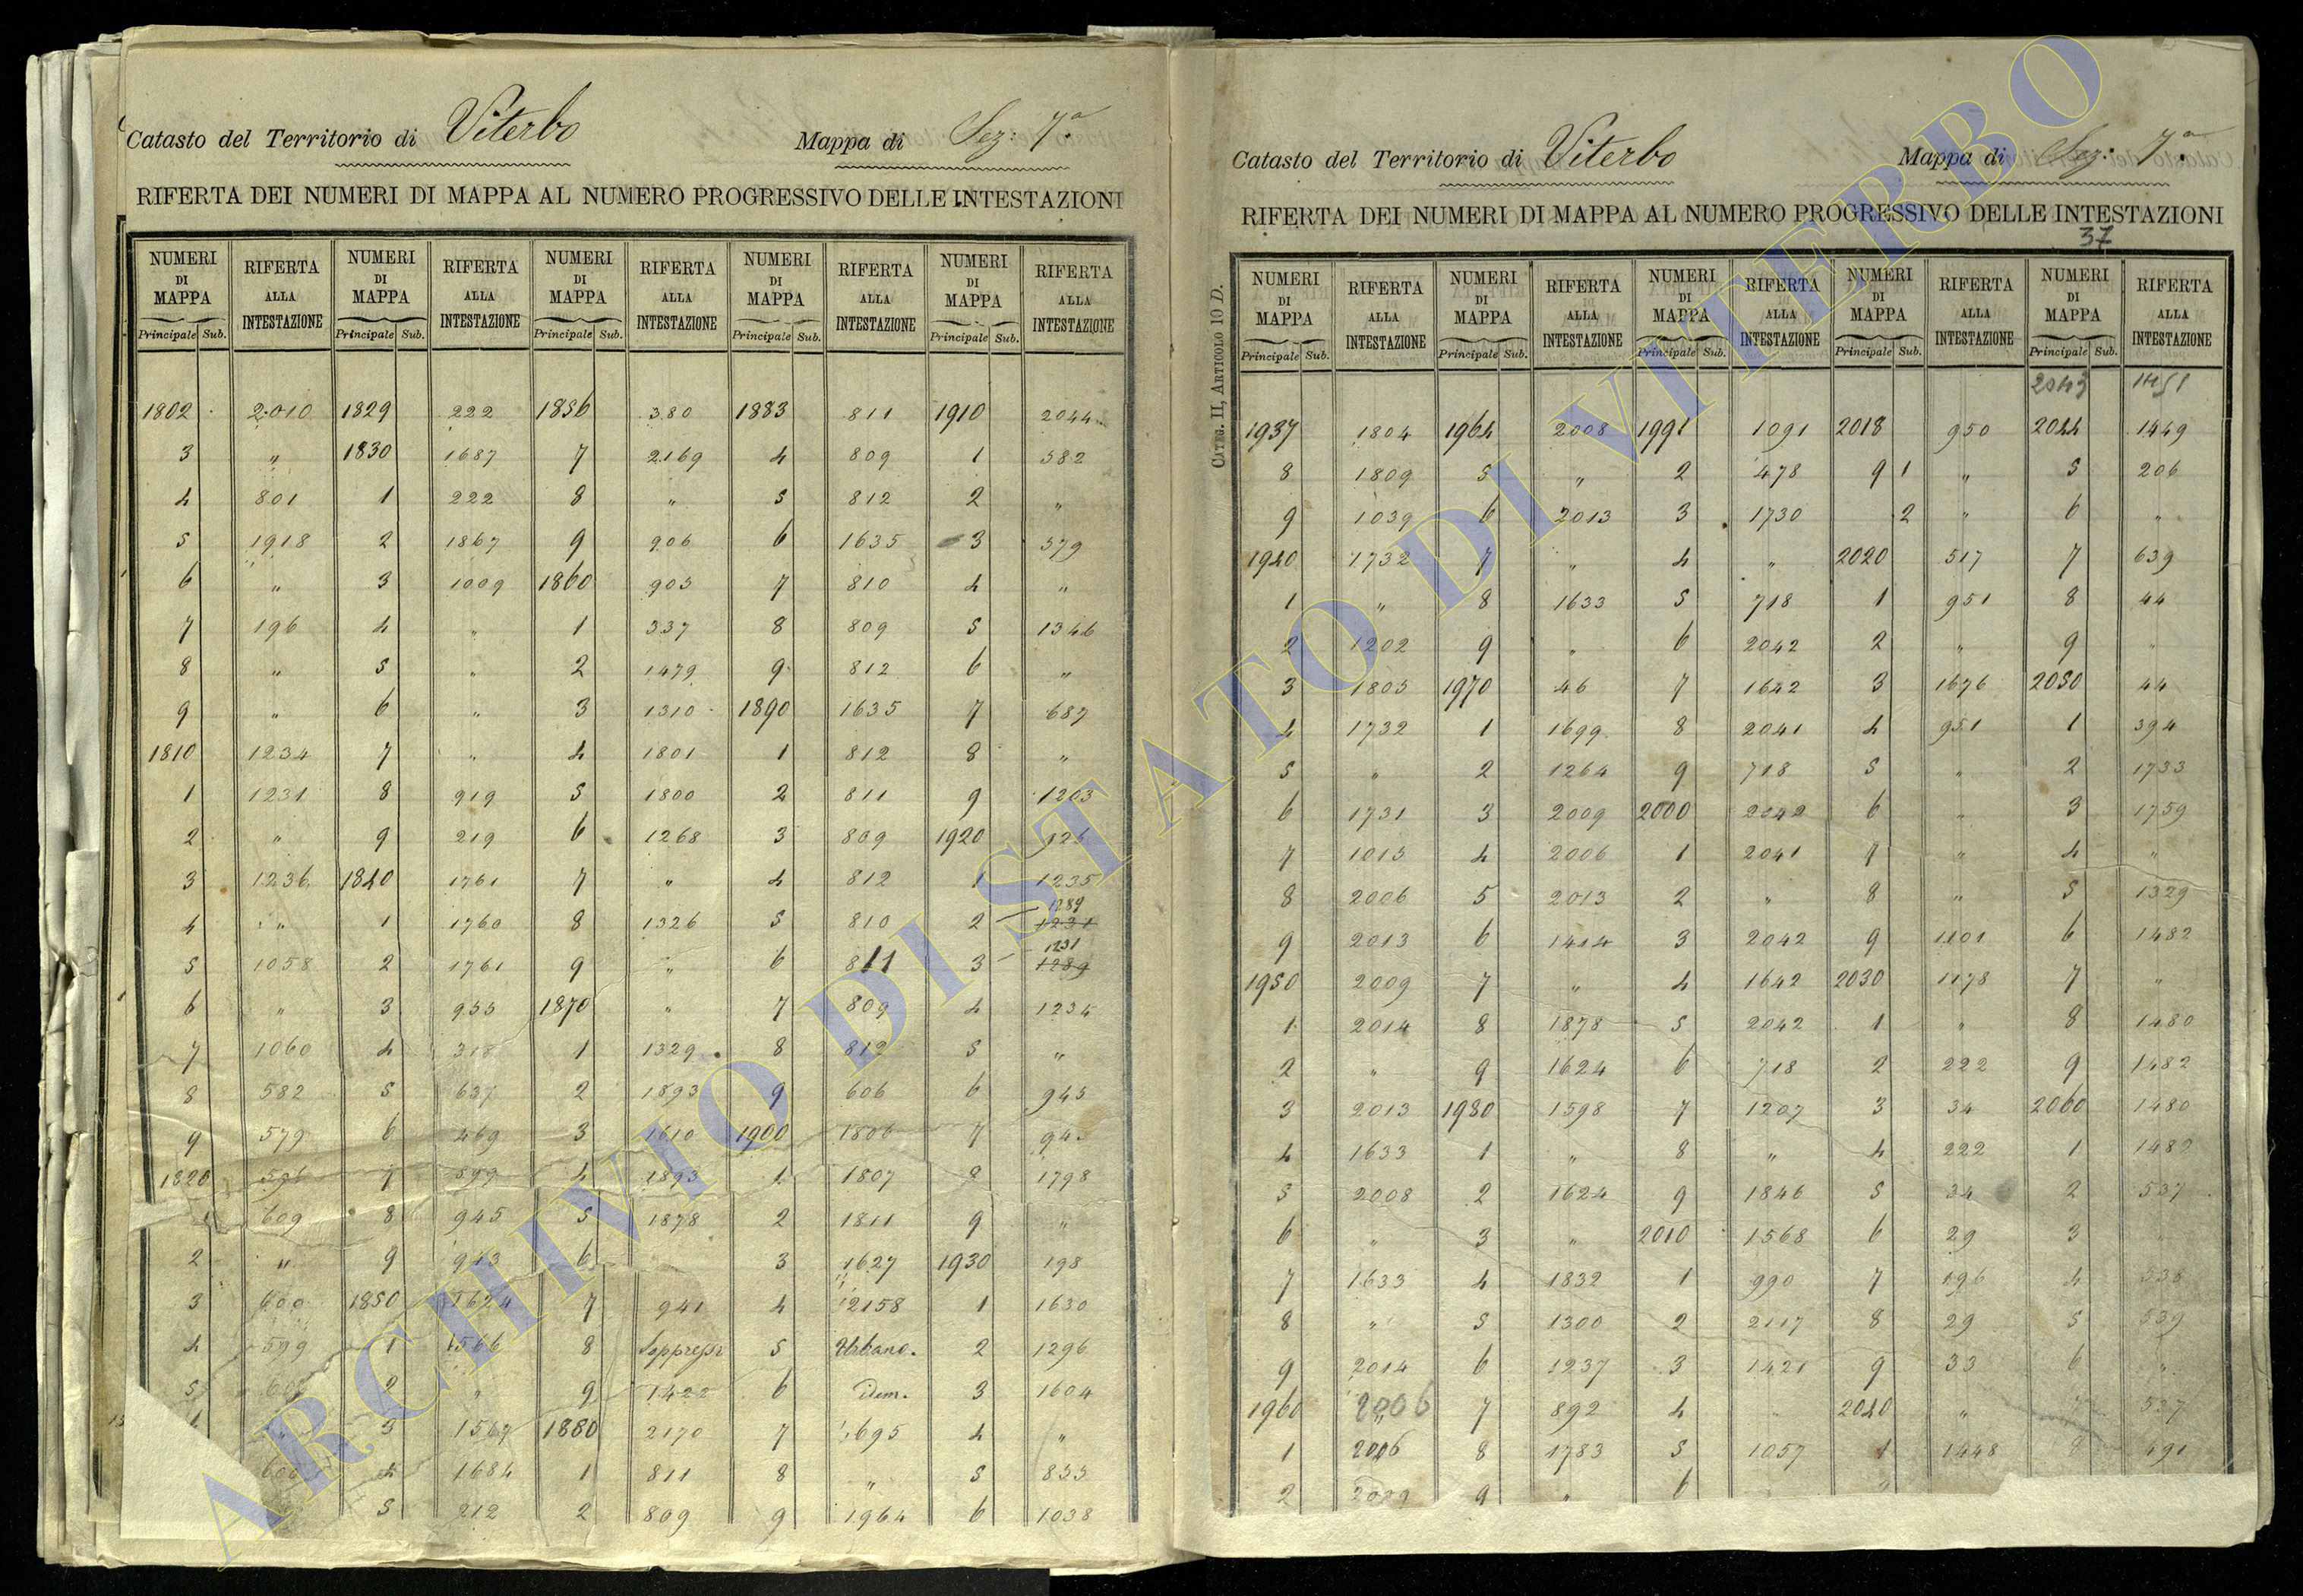 Catasto del Territorio di Viterbo Mappa di Sez: 7.a
RIFERTA DEI NUMERI DI MAPPA AL NUMERO PROGRESSIVO DELLE INTESTAZIONI
NUMERI DI MAPPA RIFERTA ALLA INTESTAZIONE NUMERI DI MAPPA RIFERTA ALLA INTESTAZIONE NUMERI DI MAPPA RIFERTA ALLA INTESTAZIONE NUMERI DI MAPPA RIFERTA ALLA INTESTAZIONE NUMERI DI MAPPA RIFERTA ALLA INTESTAZIONE
Principale Sub. Principale Sub. Principale Sub. Principale Sub. Principale Sub.
1802 2010 1829 222 1856 380 1883 811 1910 2044
3 " 1830 1687 7 2169 4 809 1 582
4 801 1 222 8 " 5 812 2 "
5 1918 2 1867 9 906 6 1635 3 579
6 " 3 1009 1860 905 7 810 4 "
7 196 4 " 1 337 8 809 5 1346
8 " 5 " 2 1479 9 812 6 "
9 " 6 " 3 1310 1890 1635 7 687
1810 1234 7 " 4 1801 1 812 8 "
1 1231 8 919 5 1800 2 811 9 1263
2 " 9 219 6 1268 3 809 1920 126
3 1236 1840 1761 7 " 4 812 1 1235
4 " 1 1760 8 1326 5 810 2 1289 1231
5 1058 2 1761 9 " 6 811 3 1231 1289
6 " 3 955 1870 " 7 809 4 1234
7 1060 4 318 1 1329 8 812 5 "
8 582 5 637 2 1893 9 606 6 945
9 579 6 469 3 1610 1900 1806 7
1820 596 7 599 4 1893 1 1807 8 1798
609 8 945 5 1878 2 1811 9 "
2 " 9 943 6 3 1627 1930 198
3 600 1850 1624 7 941 4 2158 1 1630
4 599 1 1566 8 Soppressi 5 Urbano. 2 1296
5 2 " 9 1422 6 Idem. 3 1604
" 3 1567 1880 2170 7 1695 4 "
4 1684 1 811 8 " 5 855
5 212 2 809 9 1964 6 1038
Catasto del Territorio di Viterbo Mappa di Sez: 7.a
RIFERTA DEI NUMERI DI MAPPA AL NUMERO PROGRESSIVO DELLE INTESTAZIONI
37
CATEG. II, ARTICOLO 10 D.
NUMERI DI MAPPA RIFERTA ALLA INTESTAZIONE NUMERI DI MAPPA RIFERTA ALLA INTESTAZIONE NUMERI DI MAPPA RIFERTA ALLA INTESTAZIONE NUMERI DI MAPPA RIFERTA ALLA INTESTAZIONE NUMERI DI MAPPA RIFERTA ALLA INTESTAZIONE
Principale Sub. Principale Sub. Principale Sub. Principale Sub. Principale Sub.
2043 1451
1937 1804 1964 2008 1991 1091 2018 950 2044 1449
8 1809 5 " 2 478 9 1 " 5 206
9 1039 6 2013 3 1730 2 " 6 "
1940 1732 7 " 4 " 2020 517 7 639
1 " 8 1633 5 718 1 951 8 44
2 1202 9 " 6 2042 2 " 9 "
3 1805 1970 46 7 1642 3 1676 2050 44
4 1732 1 1699 8 2041 4 951 1 394
5 " 2 1264 9 718 5 " 2 1733
6 1731 3 2009 2000 2042 6 " 3 1759
7 1015 4 2006 1 2041 7 " 4 "
8 2006 5 2013 2 " 8 " 5 1329
9 2013 6 1414 3 2042 9 1101 6 1482
1950 2009 7 " 4 1642 2030 1178 7 "
1 2014 8 1878 5 2042 1 " 8 1480
2 " 9 1624 6 718 2 222 9 1482
3 2013 1980 1598 7 1207 3 34 2060 1480
4 1633 1 " 8 " 4 222 1 1482
5 2008 2 1624 9 1846 5 34 2 537
6 " 3 " 2010 1568 6 29 3
7 1633 4 1832 1 990 7 196 4 536
8 " 5 1300 2 2117 8 29 5 539
9 2014 6 1237 3 1421 9 33 6 "
1960 2006 7 892 4 " 2040 " 7 537
1 2006 8 1783 5 1057 1 1448 8 491
2 2009 9 " 6
ARCHIVIO DI STATO DI VITERBO